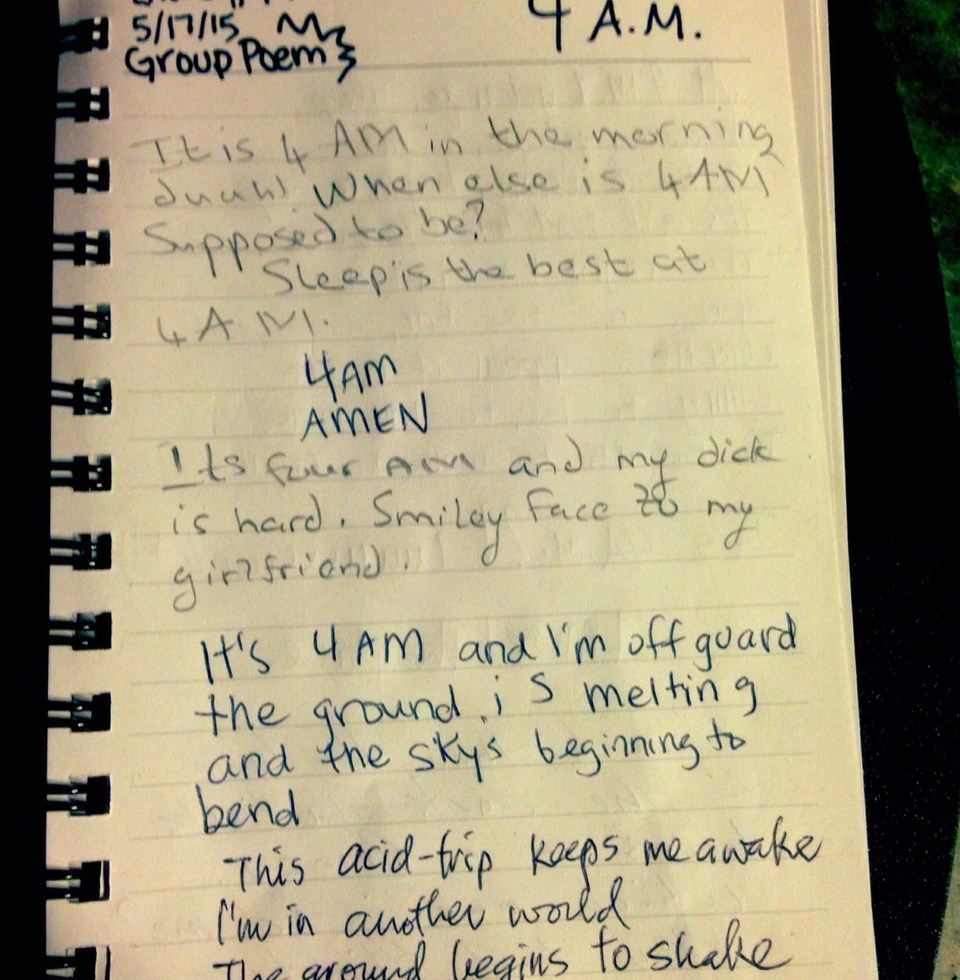 5/17/15
4 A.M.
Group Poem
It is 4 AM in the morning
duuh! When else is 4AM
Supposed to be?
Sleep is the best at
4 A M.
4AM
AMEN
Its four AM and my dick
is hard. Smiley Face to my
girlfriend.
It's 4 AM and I'm off guard
the ground is melting
and the skys beginning to
bend
This acid-trip keeps me awake
I'm in another world
The ground begins to shake